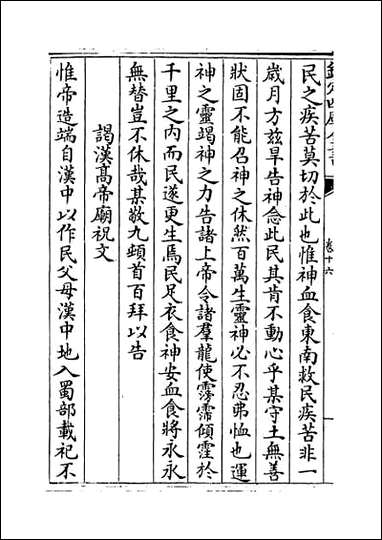 民之疾苦莫切於此也惟神血食東南救民疾苦非一
歲月方兹旱告神念此民其肯不動心乎某守土無善
狀固不能召神之休然百萬生靈神必不忍弗恤也運
神之靈竭神之力告諸上帝令諸羣龍使霶霈傾霔於
千里之内而民遂更生焉民足衣食神安血食將永永
無替豈不休哉某敢九頓首百拜以告
謁漢髙帝廟祝文
惟帝造端自漢中以作民父母漢中地入蜀部載祀不
欽定四庫全書
卷十六